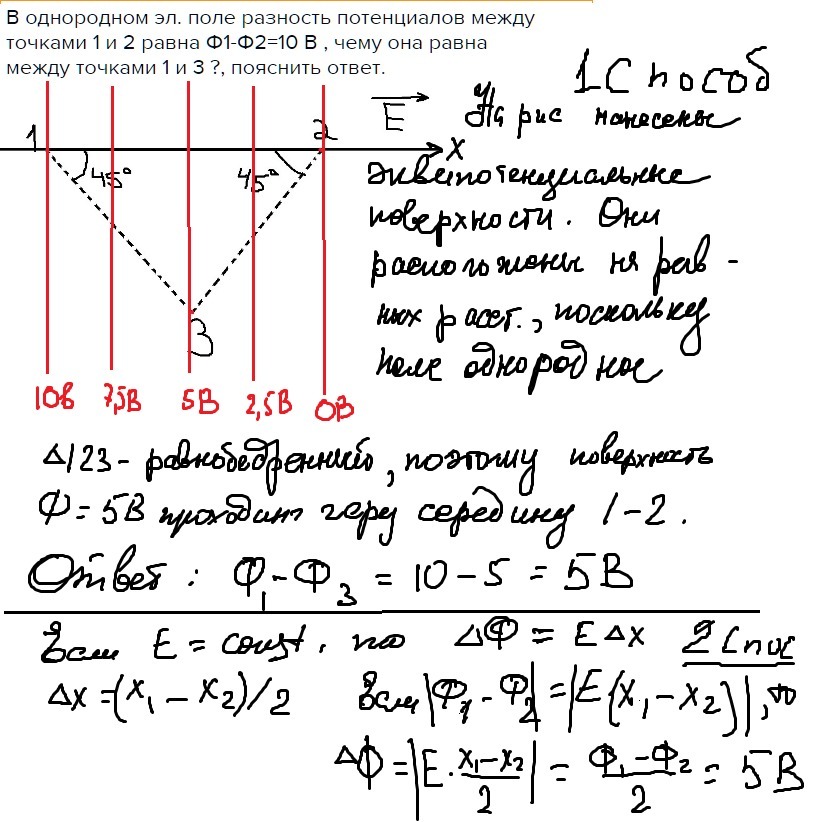 В однородном эл. поле разность потенциалов между
точками 1 и 2 равна Ф1-Ф2=10 В , чему она равна
между точками 1 и 3 ?, пояснить ответ.
1 Способ
E
На рис нанесены
1
2
X
45°
45°
эквипотенциальные
поверхности. Они
расположены на рав -
ных расст., поскольку
поле однородное
3
10В 7,5В 5В 2,5В 0В
Δ123 - равнобедренный, поэтому поверхность
Ф = 5В проходит через середину 1-2.
Ответ : Ф₁-Ф₃ = 10 - 5 = 5В
Если E = const, то ΔФ = EΔx 2 Спос
Δx = (x₁ - x₂)/2 Если |Ф₁ - Ф₂| = |E(x₁ - x₂)|, то
ΔФ = |E · x₁-x₂/2| = Ф₁-Ф₂/2 = 5В